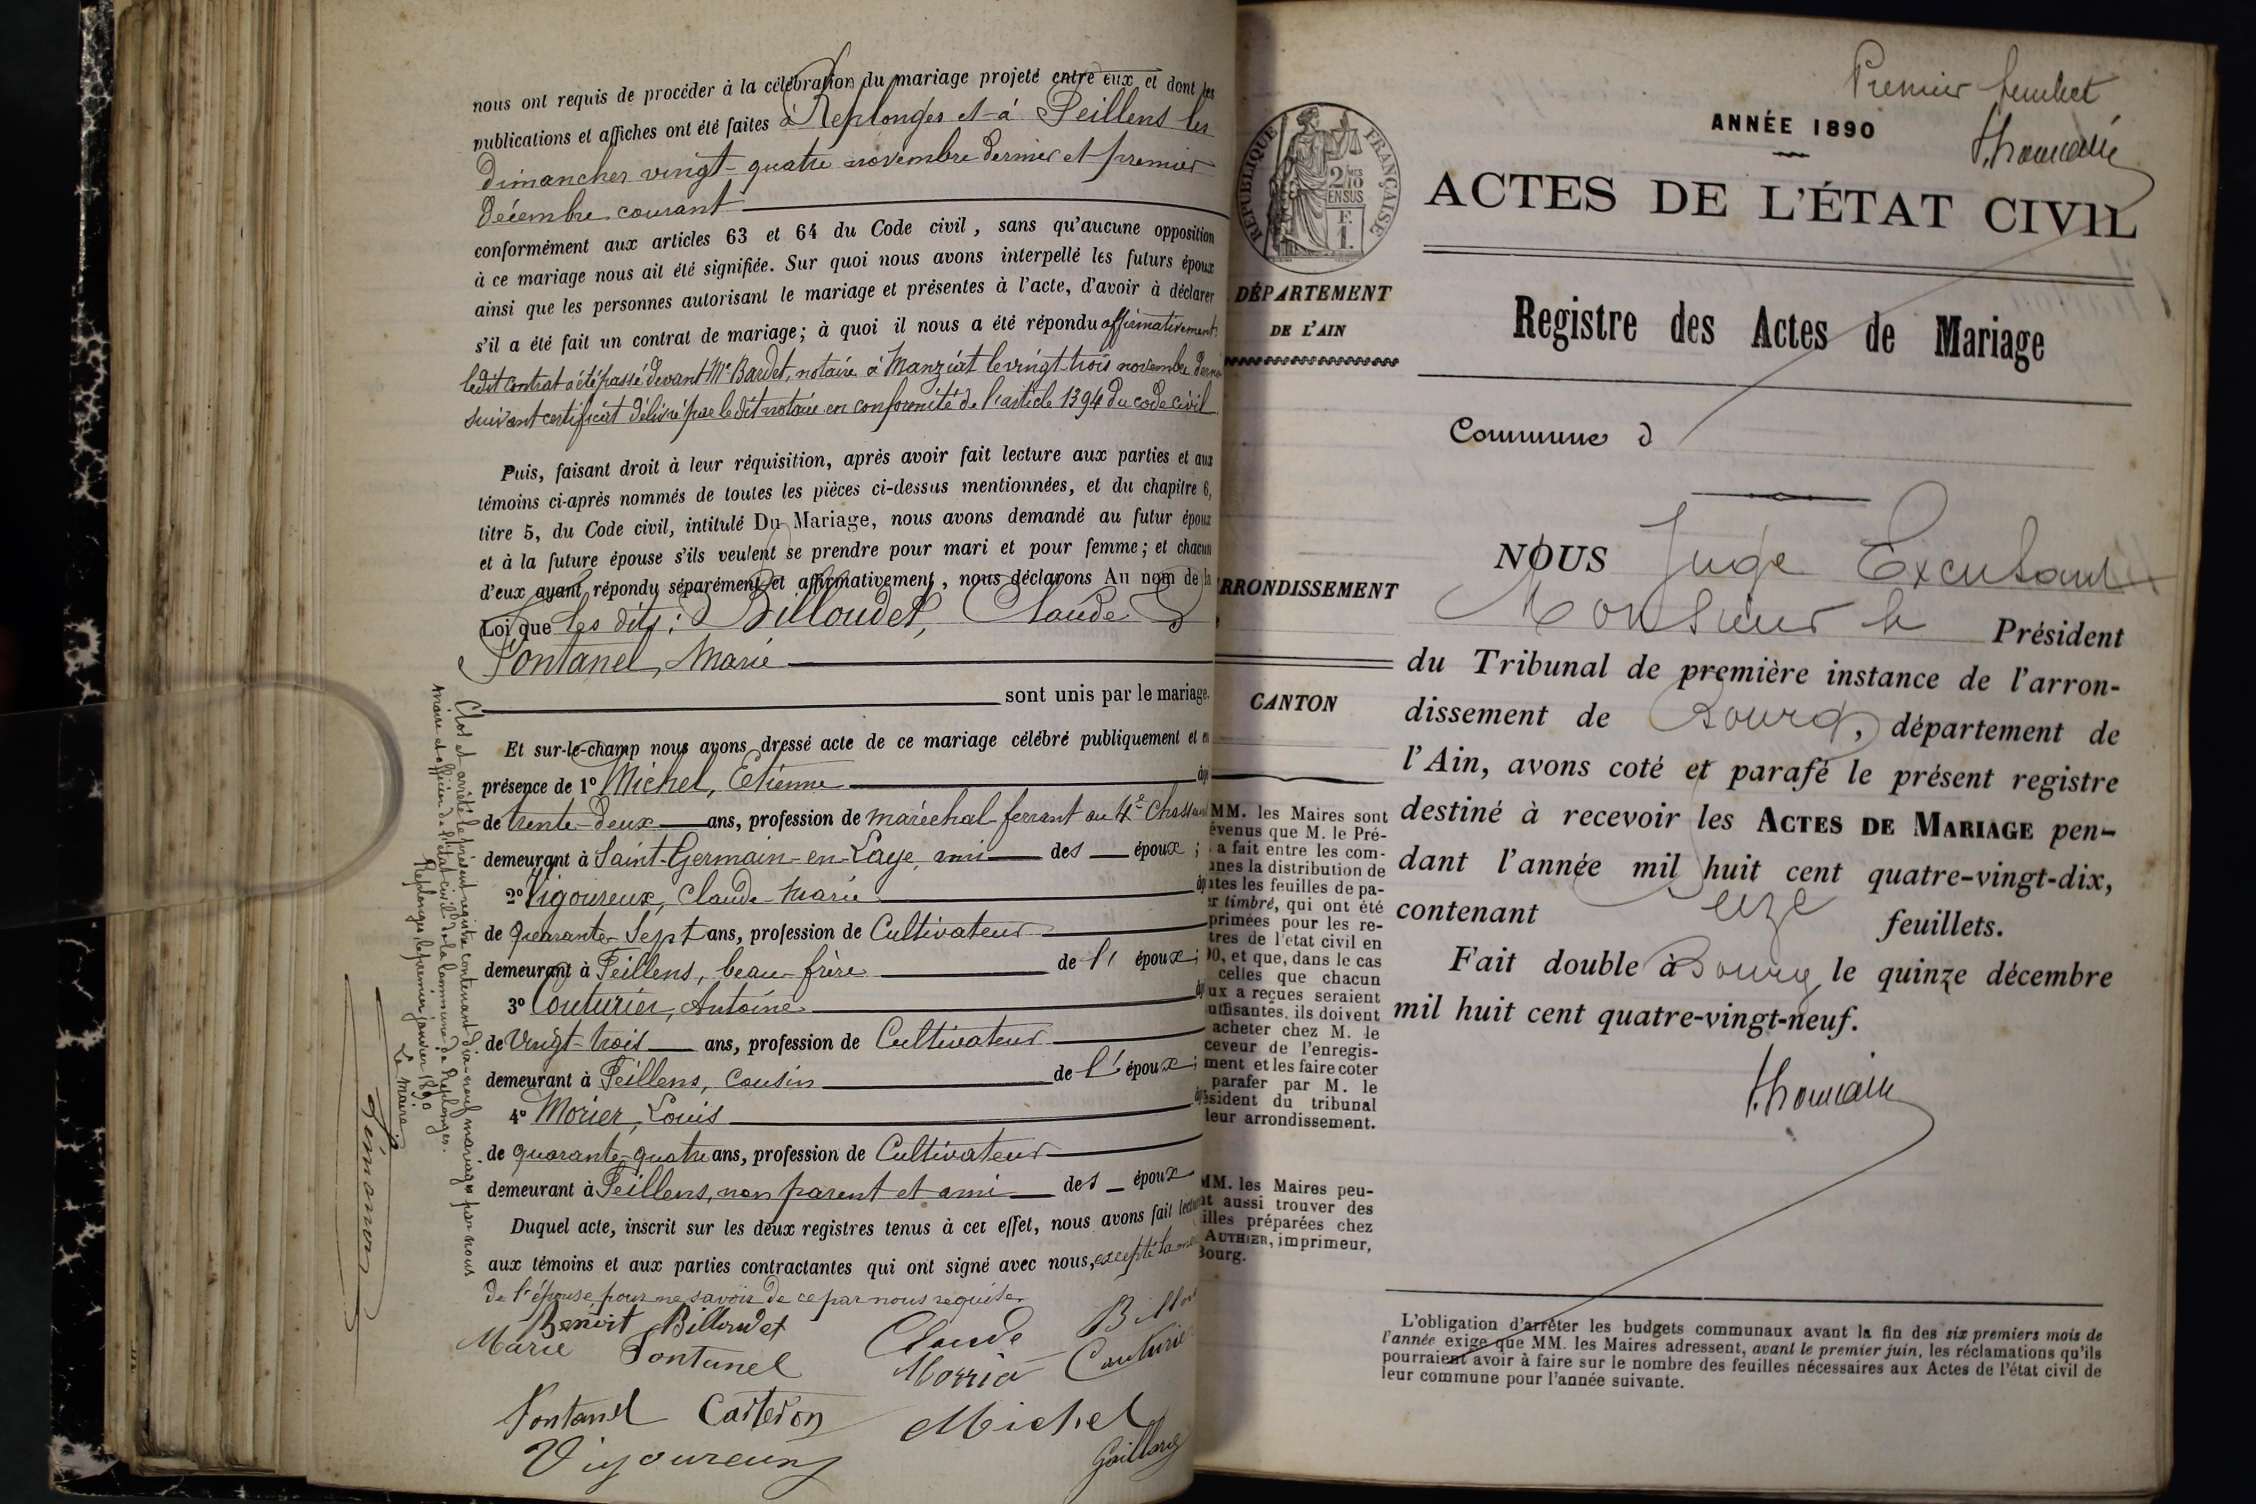 nous ont requis de procéder à la célébration du mariage projeté entre eux et dont les
publications et affiches ont été faites à Replonges et à Feillens les
dimanches vingt-quatre novembre dernier et premier
décembre courant
conformément aux articles 63 et 64 du Code civil, sans qu'aucune opposition
à ce mariage nous ait été signifiée. Sur quoi nous avons interpellé les futurs époux
ainsi que les personnes autorisant le mariage et présentes à l'acte, d'avoir à déclarer
s'il a été fait un contrat de mariage; à quoi il nous a été répondu affirmativement
ledit contrat a été passé devant Me Bardet, notaire à Manziat le vingt-trois novembre dernier
suivant certificat délivré par le dit notaire en conformité de l'article 1394 du code civil
Puis, faisant droit à leur réquisition, après avoir fait lecture aux parties et aux
témoins ci-après nommés de toutes les pièces ci-dessus mentionnées, et du chapitre 6,
titre 5, du Code civil, intitulé Du Mariage, nous avons demandé au futur époux
et à la future épouse s'ils veulent se prendre pour mari et pour femme; et chacun
d'eux ayant répondu séparément et affirmativement, nous déclarons Au nom de la
Loi que les dits: Billoudet, Claude &
Fontanel, Marie
sont unis par le mariage.
Et sur-le-champ nous avons dressé acte de ce mariage célébré publiquement et en
présence de 1° Michel, Etienne âgé
de trente-deux ans, profession de maréchal-ferrant au 4e Chasseurs
demeurant à Saint-Germain-en-Laye, ami des époux;
2° Vigoureux, Claude-Marie âgé
de quarante-sept ans, profession de Cultivateur
demeurant à Feillens, beau-frère de l' époux;
3° Couturier, Antoine âgé
de vingt-trois ans, profession de Cultivateur
demeurant à Feillens, cousin de l' époux;
4° Morier, Louis âgé
de quarante-quatre ans, profession de Cultivateur
demeurant à Feillens, non parent et ami des époux
Duquel acte, inscrit sur les deux registres tenus à cet effet, nous avons fait lecture
aux témoins et aux parties contractantes qui ont signé avec nous, excepté la mère
de l'épouse pour ne savoir de ce par nous requise.
Benoit Billoudet Claude Billou
Marie Fontanel Morrier Couturier
Fontanel Carteron Michel
Vigoureux Gaillard
Clos et arrêté le présent registre contenant dix-neuf mariages par nous
maire et officier de l'état civil de la commune de Replonges.
Replonges, le premier janvier 1890
Le Maire
Premier feuillet
ANNÉE 1890
ACTES DE L'ÉTAT CIVIL
RÉPUBLIQUE FRANÇAISE
2/10 MES
EN SUS
F.
1.
DÉPARTEMENT
DE L'AIN
Registre des Actes de Mariage
Commune d
ARRONDISSEMENT
CANTON
NOUS Juge Excusant
Monsieur le Président
du Tribunal de première instance de l'arron-
dissement de Bourg, département de
l'Ain, avons coté et parafé le présent registre
destiné à recevoir les ACTES DE MARIAGE pen-
dant l'année mil huit cent quatre-vingt-dix,
contenant seize feuillets.
Fait double à Bourg, le quinze décembre
mil huit cent quatre-vingt-neuf.
MM. les Maires sont
évenus que M. le Pré-
a fait entre les com-
unes la distribution de
utes les feuilles de pa-
er timbré, qui ont été
primées pour les re-
tres de l'état civil en
90, et que, dans le cas
celles que chacun
ux a reçues seraient
uffisantes, ils doivent
acheter chez M. le
ceveur de l'enregis-
ment et les faire coter
parafer par M. le
ésident du tribunal
leur arrondissement.
MM. les Maires peu-
nt aussi trouver des
illes préparées chez
AUTHIER, imprimeur,
Bourg.
L'obligation d'arrêter les budgets communaux avant la fin des six premiers mois de
l'année exige que MM. les Maires adressent, avant le premier juin, les réclamations qu'ils
pourraient avoir à faire sur le nombre des feuilles nécessaires aux Actes de l'état civil de
leur commune pour l'année suivante.